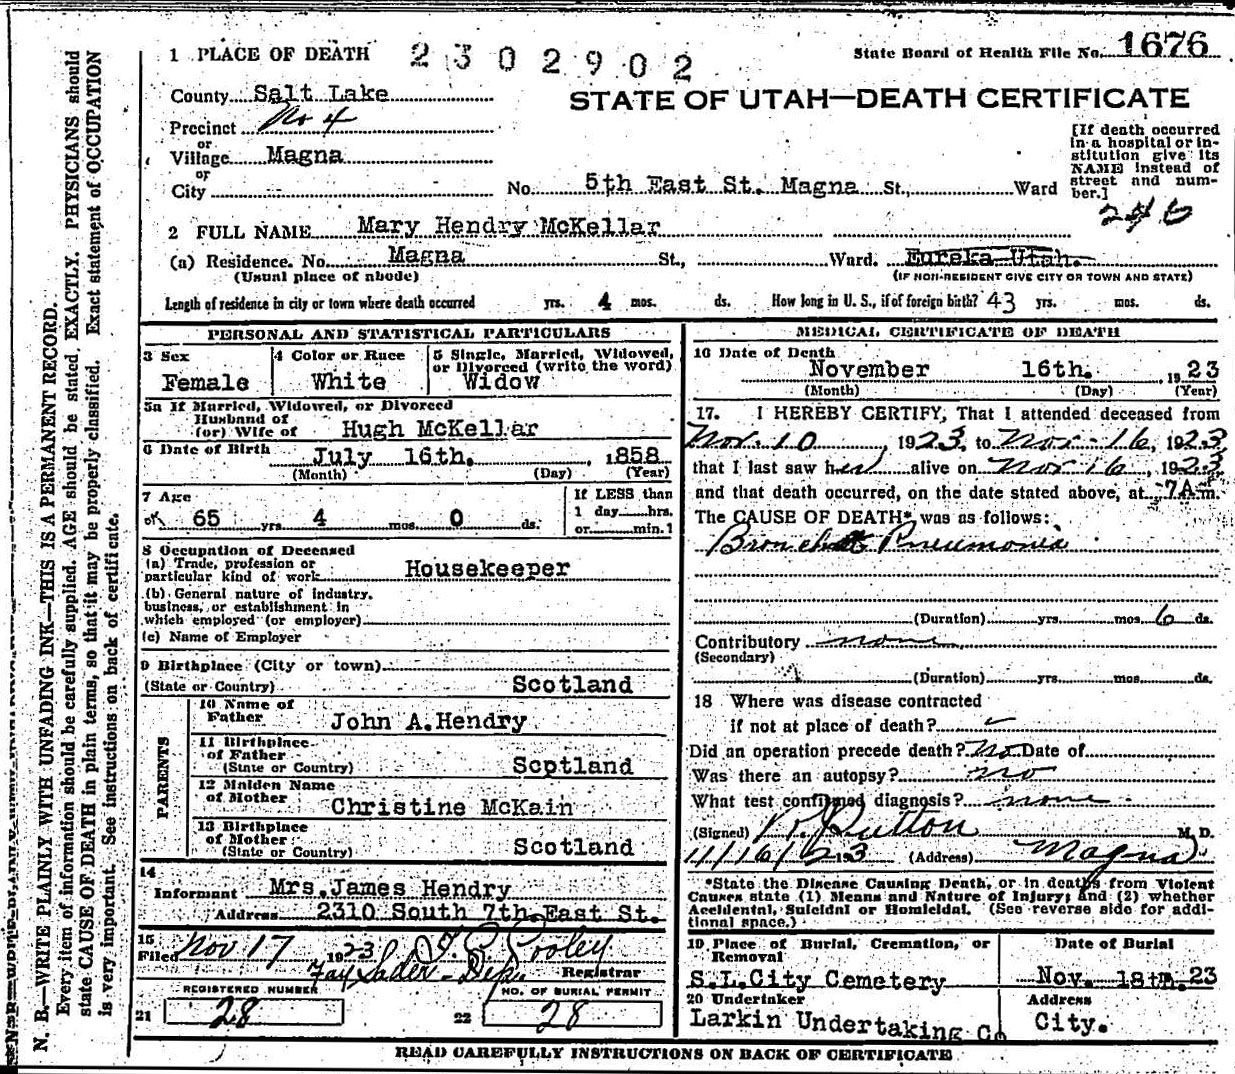 1 PLACE OF DEATH 2302902 State Board of Health File No. 1676
County Salt Lake
STATE OF UTAH—DEATH CERTIFICATE
Precinct No 4
or
Village Magna
or
City No. 5th East St. Magna St., Ward
[If death occurred
in a hospital or in-
stitution give its
NAME instead of
street and num-
ber.]
2 FULL NAME Mary Hendry McKellar
(a) Residence. No. Magna St., Ward. Eureka Utah.
(Usual place of abode) (IF NON-RESIDENT GIVE CITY OR TOWN AND STATE)
Length of residence in city or town where death occurred yrs. 4 mos. ds. How long in U. S., if of foreign birth? 43 yrs. mos. ds.
PERSONAL AND STATISTICAL PARTICULARS
3 Sex
Female
4 Color or Race
White
5 Single, Married, Widowed,
or Divorced (write the word)
Widow
5a If Married, Widowed, or Divorced
Husband of
(or) Wife of Hugh McKellar
6 Date of Birth July 16th. , 1858
(Month) (Day) (Year)
7 Age
OK 65 yrs. 4 mos. 0 ds.
If LESS than
1 day hrs.
or min.?
8 Occupation of Deceased
(a) Trade, profession or
particular kind of work Housekeeper
(b) General nature of industry,
business, or establishment in
which employed (or employer)
(c) Name of Employer
9 Birthplace (City or town)
(State or Country) Scotland
PARENTS
10 Name of
Father John A.Hendry
11 Birthplace
of Father
(State or Country) Scptland
12 Maiden Name
of Mother Christine McKain
13 Birthplace
of Mother
(State or Country) Scotland
14
Informant Mrs.James Hendry
Address 2310 South 7th.East St.
15
Filed Nov 17 1923 Pooley
Registrar
REGISTERED NUMBER NO. OF BURIAL PERMIT
21 28 22 28
MEDICAL CERTIFICATE OF DEATH
16 Date of Death
November 16th. , 1923
(Month) (Day) (Year)
17. I HEREBY CERTIFY, That I attended deceased from
Nov. 10, 1923, to Nov-16, 1923
that I last saw her alive on Nov 16, 1923
and that death occurred, on the date stated above, at 7 A m.
The CAUSE OF DEATH* was as follows:
Broncho Pneumonia
(Duration) yrs. mos. 6 ds.
Contributory none
(Secondary)
(Duration) yrs. mos. ds.
18 Where was disease contracted
if not at place of death?
Did an operation precede death? No Date of
Was there an autopsy? no
What test confirmed diagnosis? none
(Signed) M. D.
11/16/23 193 (Address) Magna
*State the Disease Causing Death, or in deaths from Violent
Causes state (1) Means and Nature of Injury; and (2) whether
Accidental, Suicidal or Homicidal. (See reverse side for addi-
tional space.)
19 Place of Burial, Cremation, or
Removal
S.L.City Cemetery
Date of Burial
Nov. 18th.23
20 Undertaker
Larkin Undertaking Co
Address
City.
READ CAREFULLY INSTRUCTIONS ON BACK OF CERTIFICATE
N. B.—WRITE PLAINLY WITH UNFADING INK—THIS IS A PERMANENT RECORD.
Every item of information should be carefully supplied. AGE should be stated EXACTLY. PHYSICIANS should
state CAUSE OF DEATH in plain terms, so that it may be properly classified. Exact statement of OCCUPATION
is very important. See instructions on back of certificate.